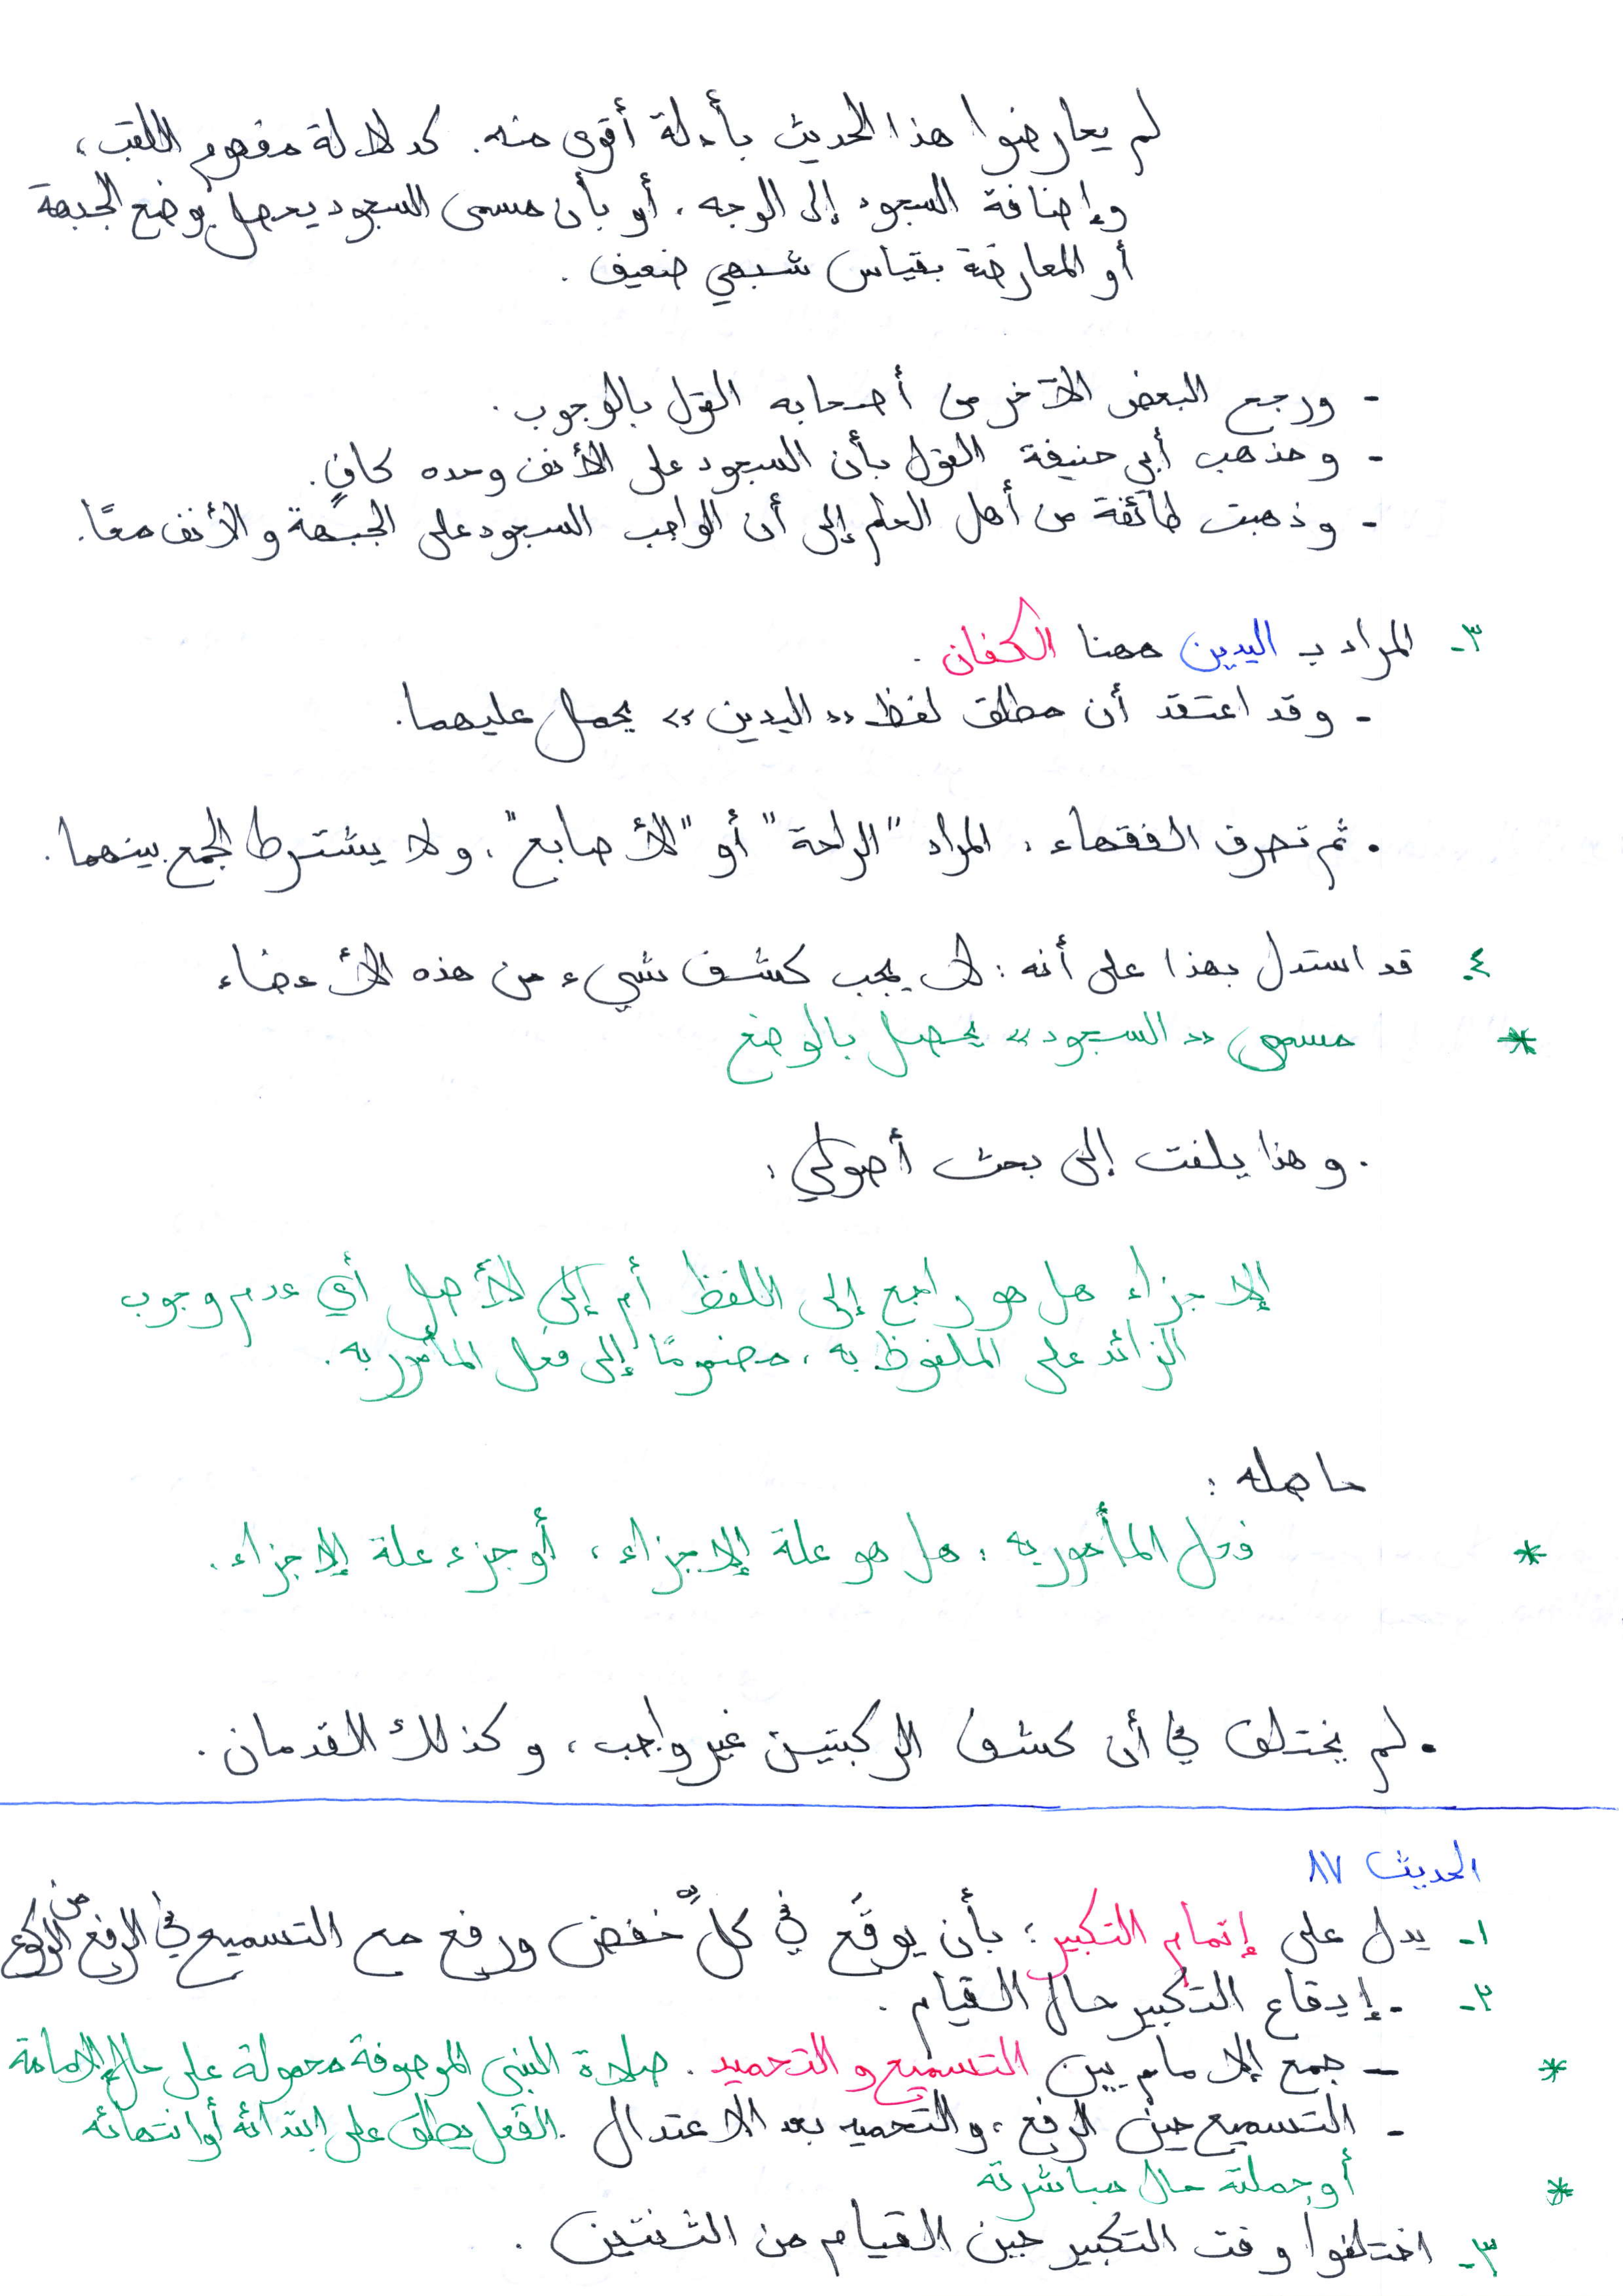 لم يعارضوا هذا الحديث بأدلة أقوى منه. كدلالة مفهوم اللقب،
وإضافة السجود إلى الوجه، أو بأن مسمى السجود يحصل بوضع الجبهة
أو المعارضة بقياس شبهي ضعيف.
- ورجع البعض الآخر من أصحابه القول بالوجوب.
- ومذهب أبي حنيفة القول بأن السجود على الأنف وحده كافٍ.
- وذهبت طائفة من أهل العلم إلى أن الواجب السجود على الجبهة والأنف معًا.
٣- المراد بـ اليدين ههنا الكفان.
- وقد اعتقد أن مطلق لفظ «اليدين» يحمل عليهما.
. ثم تصرف الفقهاء: المراد "الراحة" أو "الأصابع"، ولا يشترط الجمع بينهما.
٤. قد استدل بهذا على أنه: لا يجب كشف شيء من هذه الأعضاء
* مسمى «السجود» يحصل بالوضع
. وهذا يلفت إلى بحث أصولي:
الإجزاء هل هو راجع إلى اللفظ أم إلى الأصل أي عدم وجوب
الزائد على الملفوظ به، مضمومًا إلى فعل المأمور به.
حاصله:
* فعل المأمور به: هل هو علة الإجزاء، أو جزء علة الإجزاء.
. لم يختلف في أن كشف الركبتين غير واجب، وكذلك القدمان.
الحديث ٨٧
١- يدل على إتمام التكبير: بأن يوقَع في كلِّ خفض ورفع مع التسميع في الرفع من الركوع
٢- - إيقاع التكبير حال القيام.
* - جمع الإمام بين التسميع والتحميد. صلاة النبي الموصوفة محمولة على حال الإمامة
- التسميع حين الرفع، والتحميد بعد الاعتدال. الفعل يطلق على ابتدائه أو انتهائه
* أو جملته حال مباشرته
٣- اختلفوا وقت التكبير حين القيام من الثنتين.